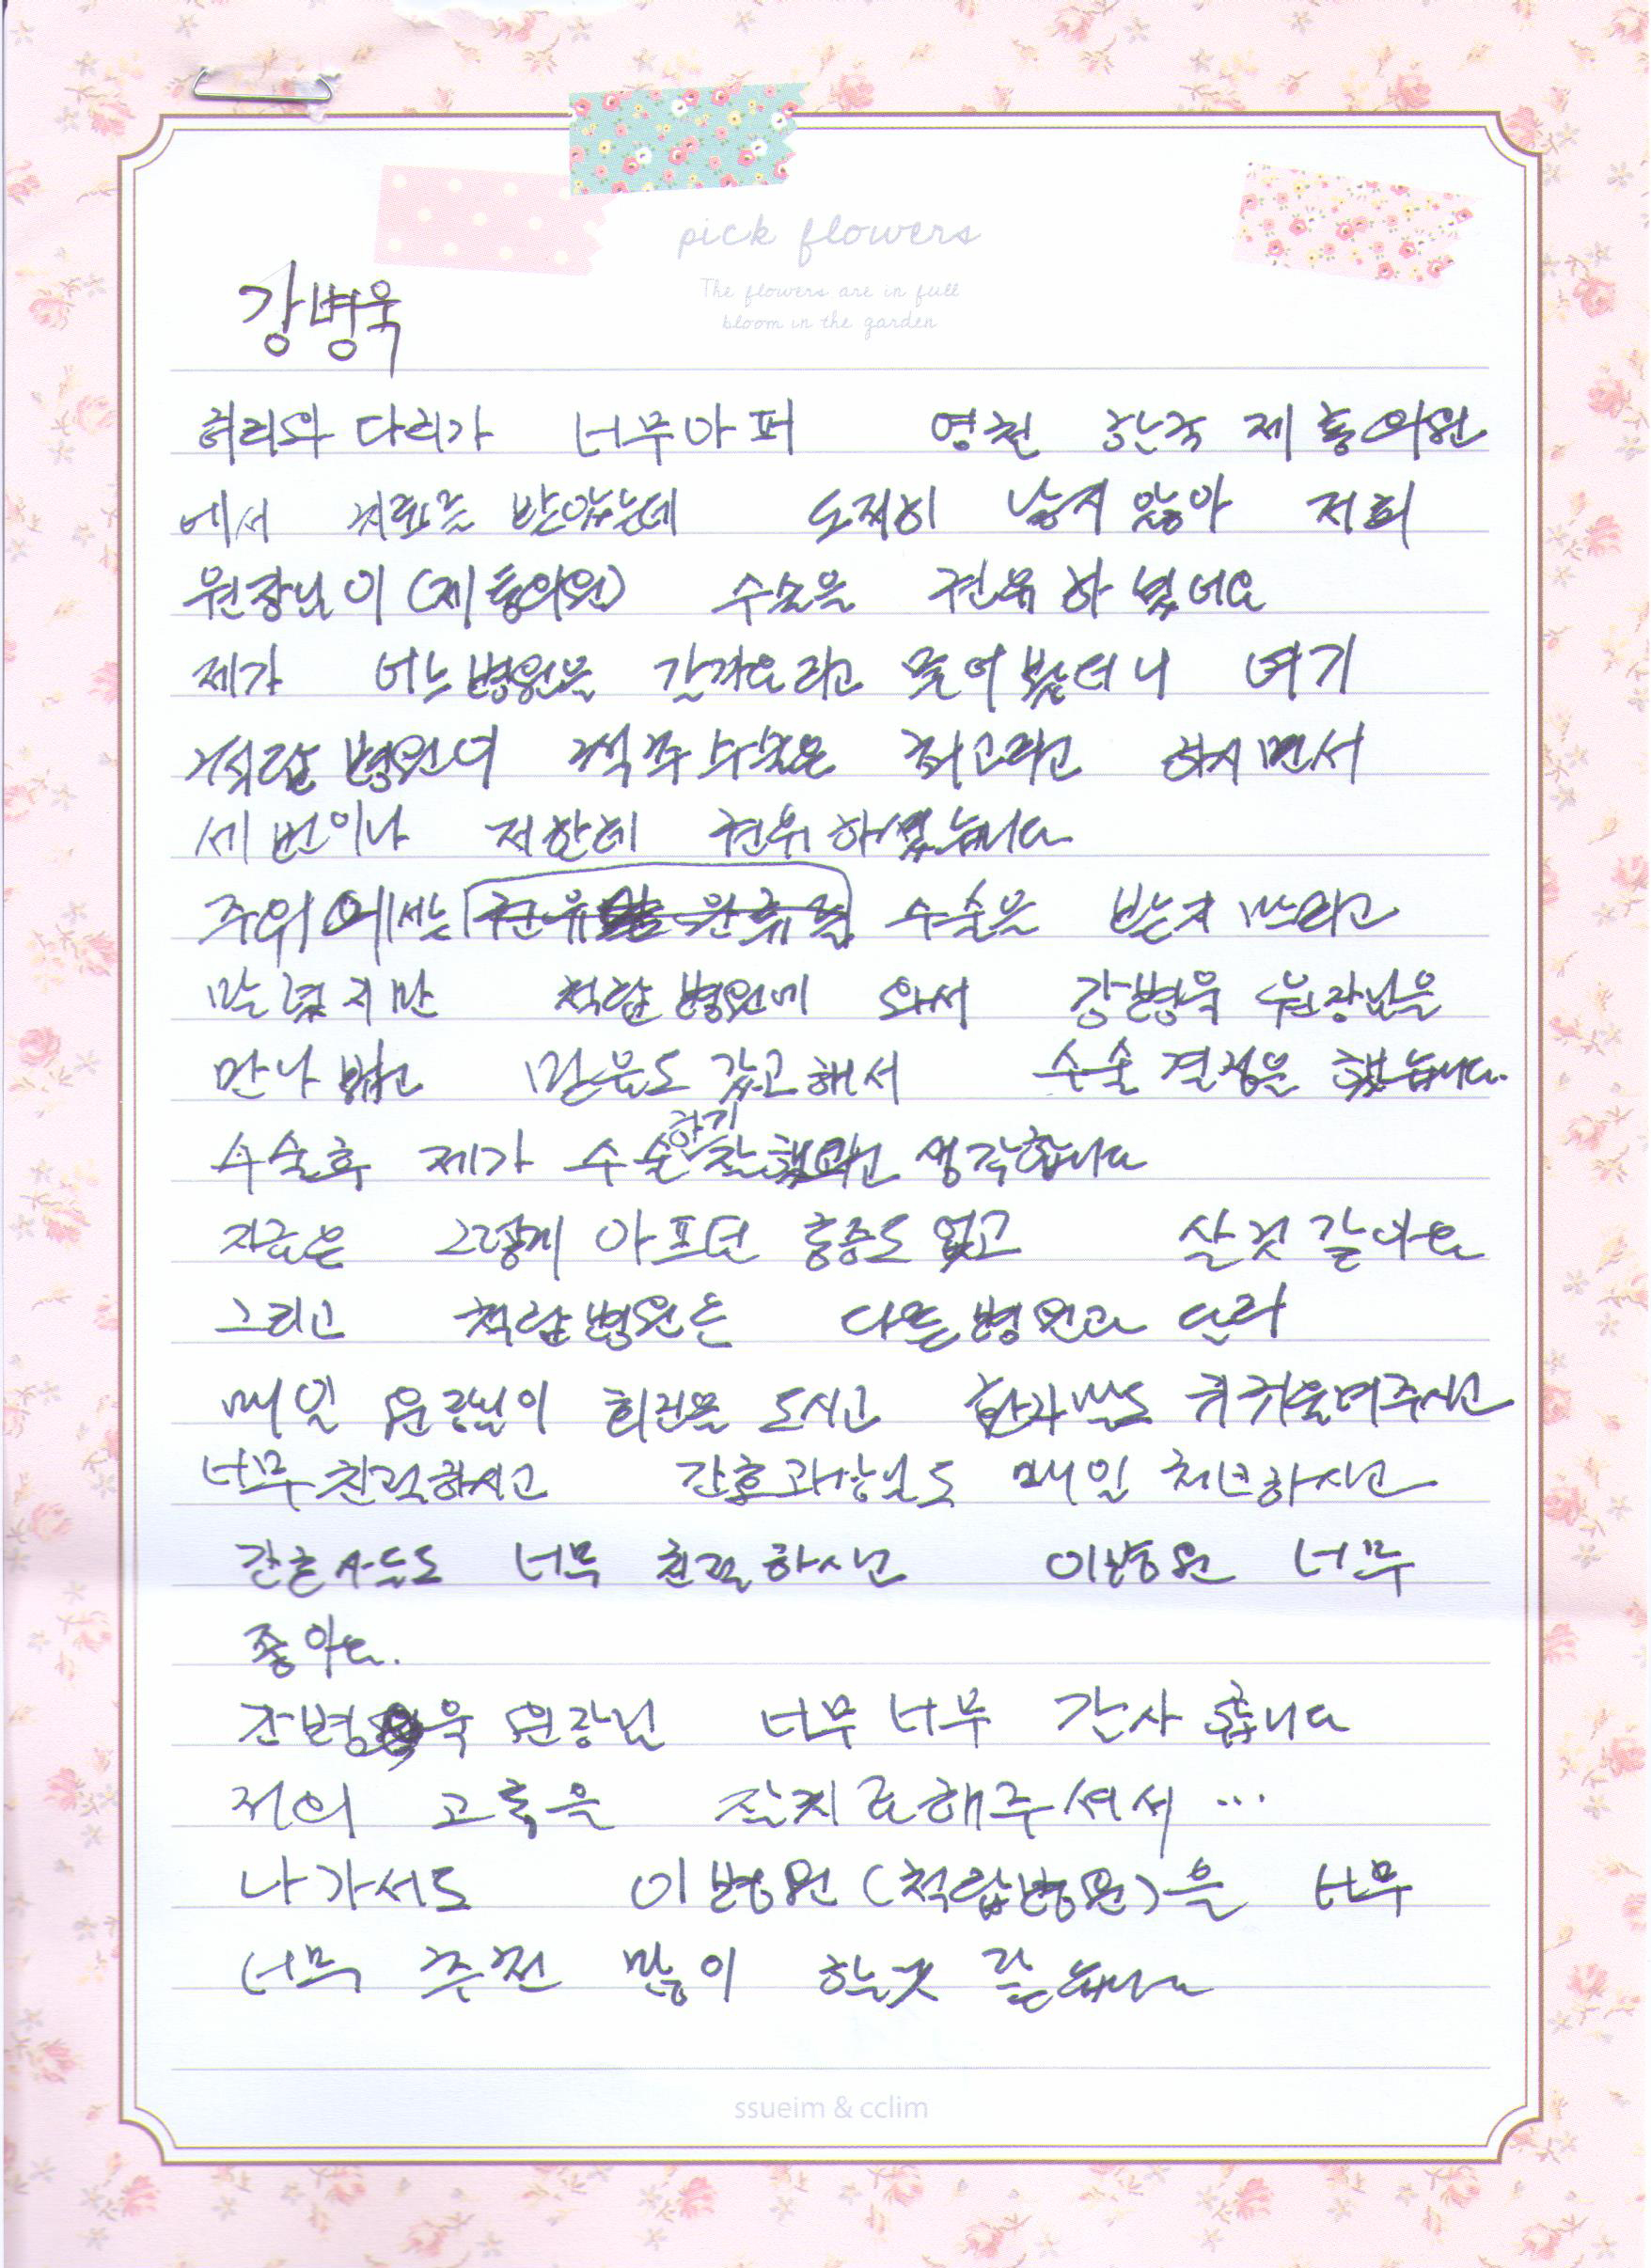 pick flowers
The flowers are in full
bloom in the garden
강병욱
허리와 다리가 너무아퍼 영천 한국 제통의원
에서 치료를 받았는데 도저히 낳지 않아 저희
원장님이 (제통의원) 수술을 권유 하셨어요
제가 어느병원을 갈까요라고 물어 봤더니 여기
척탑병원이 척추수술은 최고라고 하시면서
세번이나 저한테 권유 하셨습니다
주위에서는 수술을 받지 말라고
말렸지만 척탑병원에 와서 강병욱 원장님을
만나 뵙고 믿음도 갔고해서 수술 결정을 했습니다.
수술후 제가 수술하기 잘했다고 생각합니다
지금은 그렇게 아프던 통증도 없고 살것 같아요
그리고 척탑병원은 다른병원과 달리
매일 원장님이 회진을 도시고 환자말도 귀기울여주시고
너무친절하시고 간호과장님도 매일 체크하시고
간호사들도 너무 친절하시고 이병원 너무
좋아요.
강병욱 원장님 너무너무 감사 합니다
저의 고통을 잘치료해주셔서 ...
나가서도 이병원(척탑병원)을 너무
너무 추천 많이 할것 같습니다
ssueim & cclim